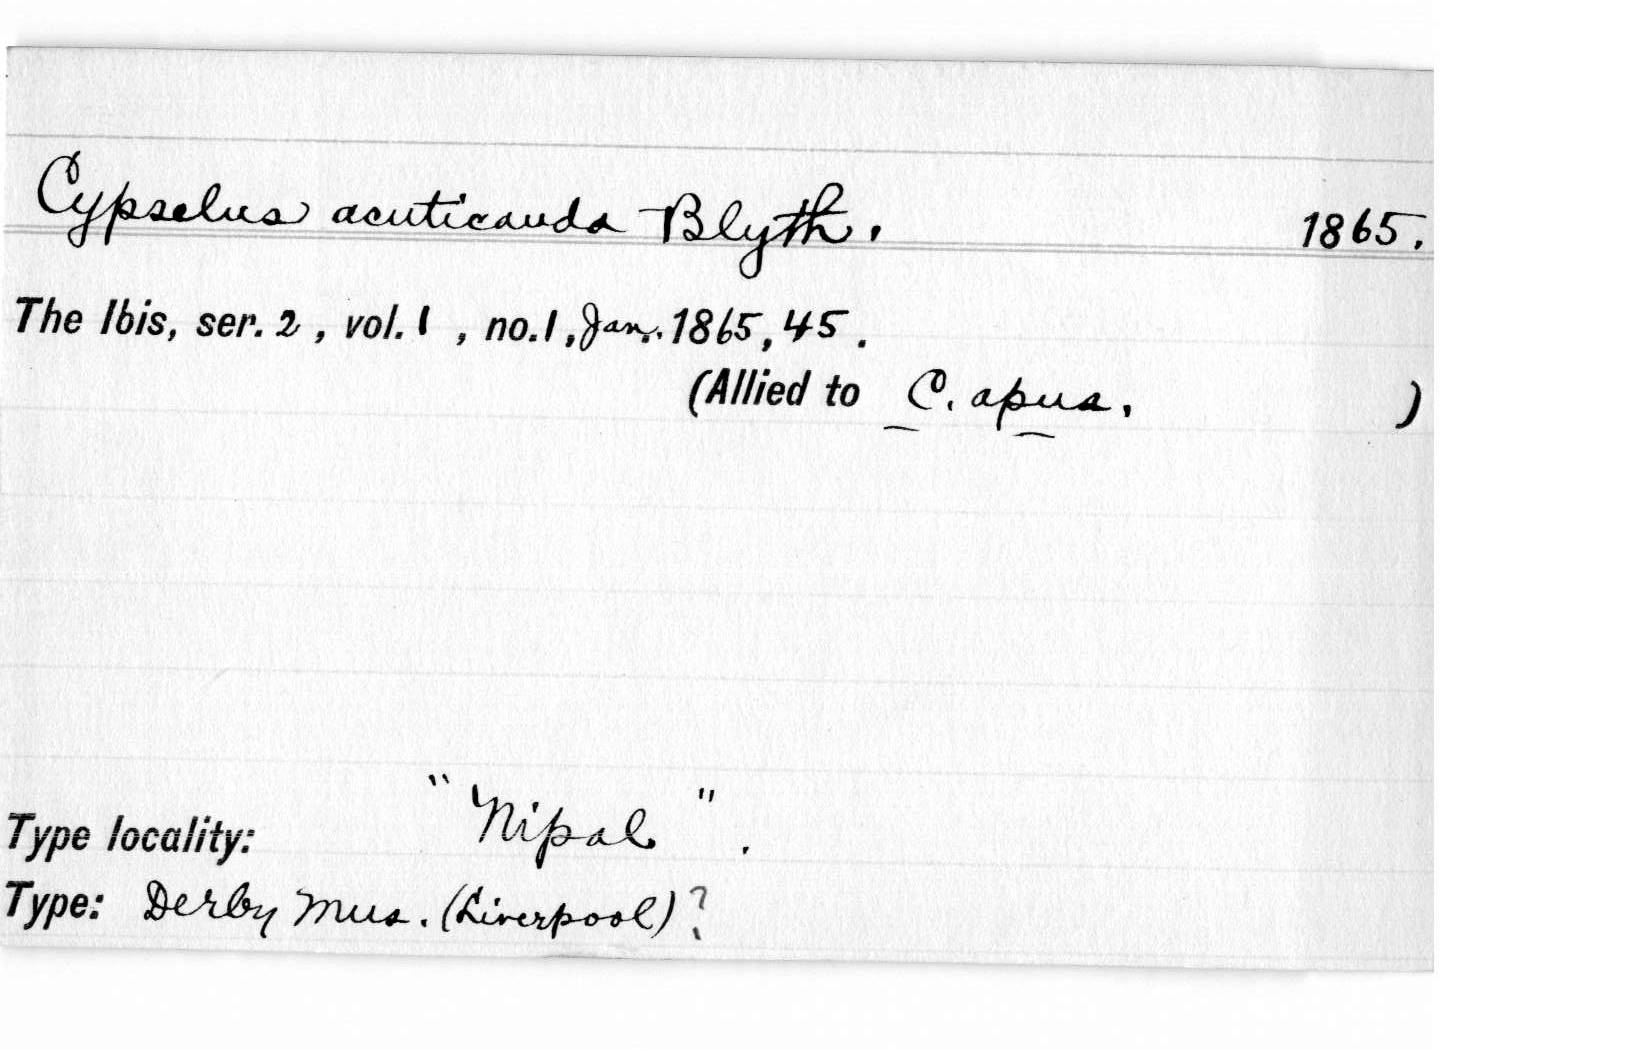 Cypselus acuticauda Blyth. 1865.
The Ibis, ser. 2, vol. 1, no. 1, Jan. 1865, 45.
(Allied to C. apus. )
Type locality: "Nipal".
Type: Derby Mus. (Liverpool)?